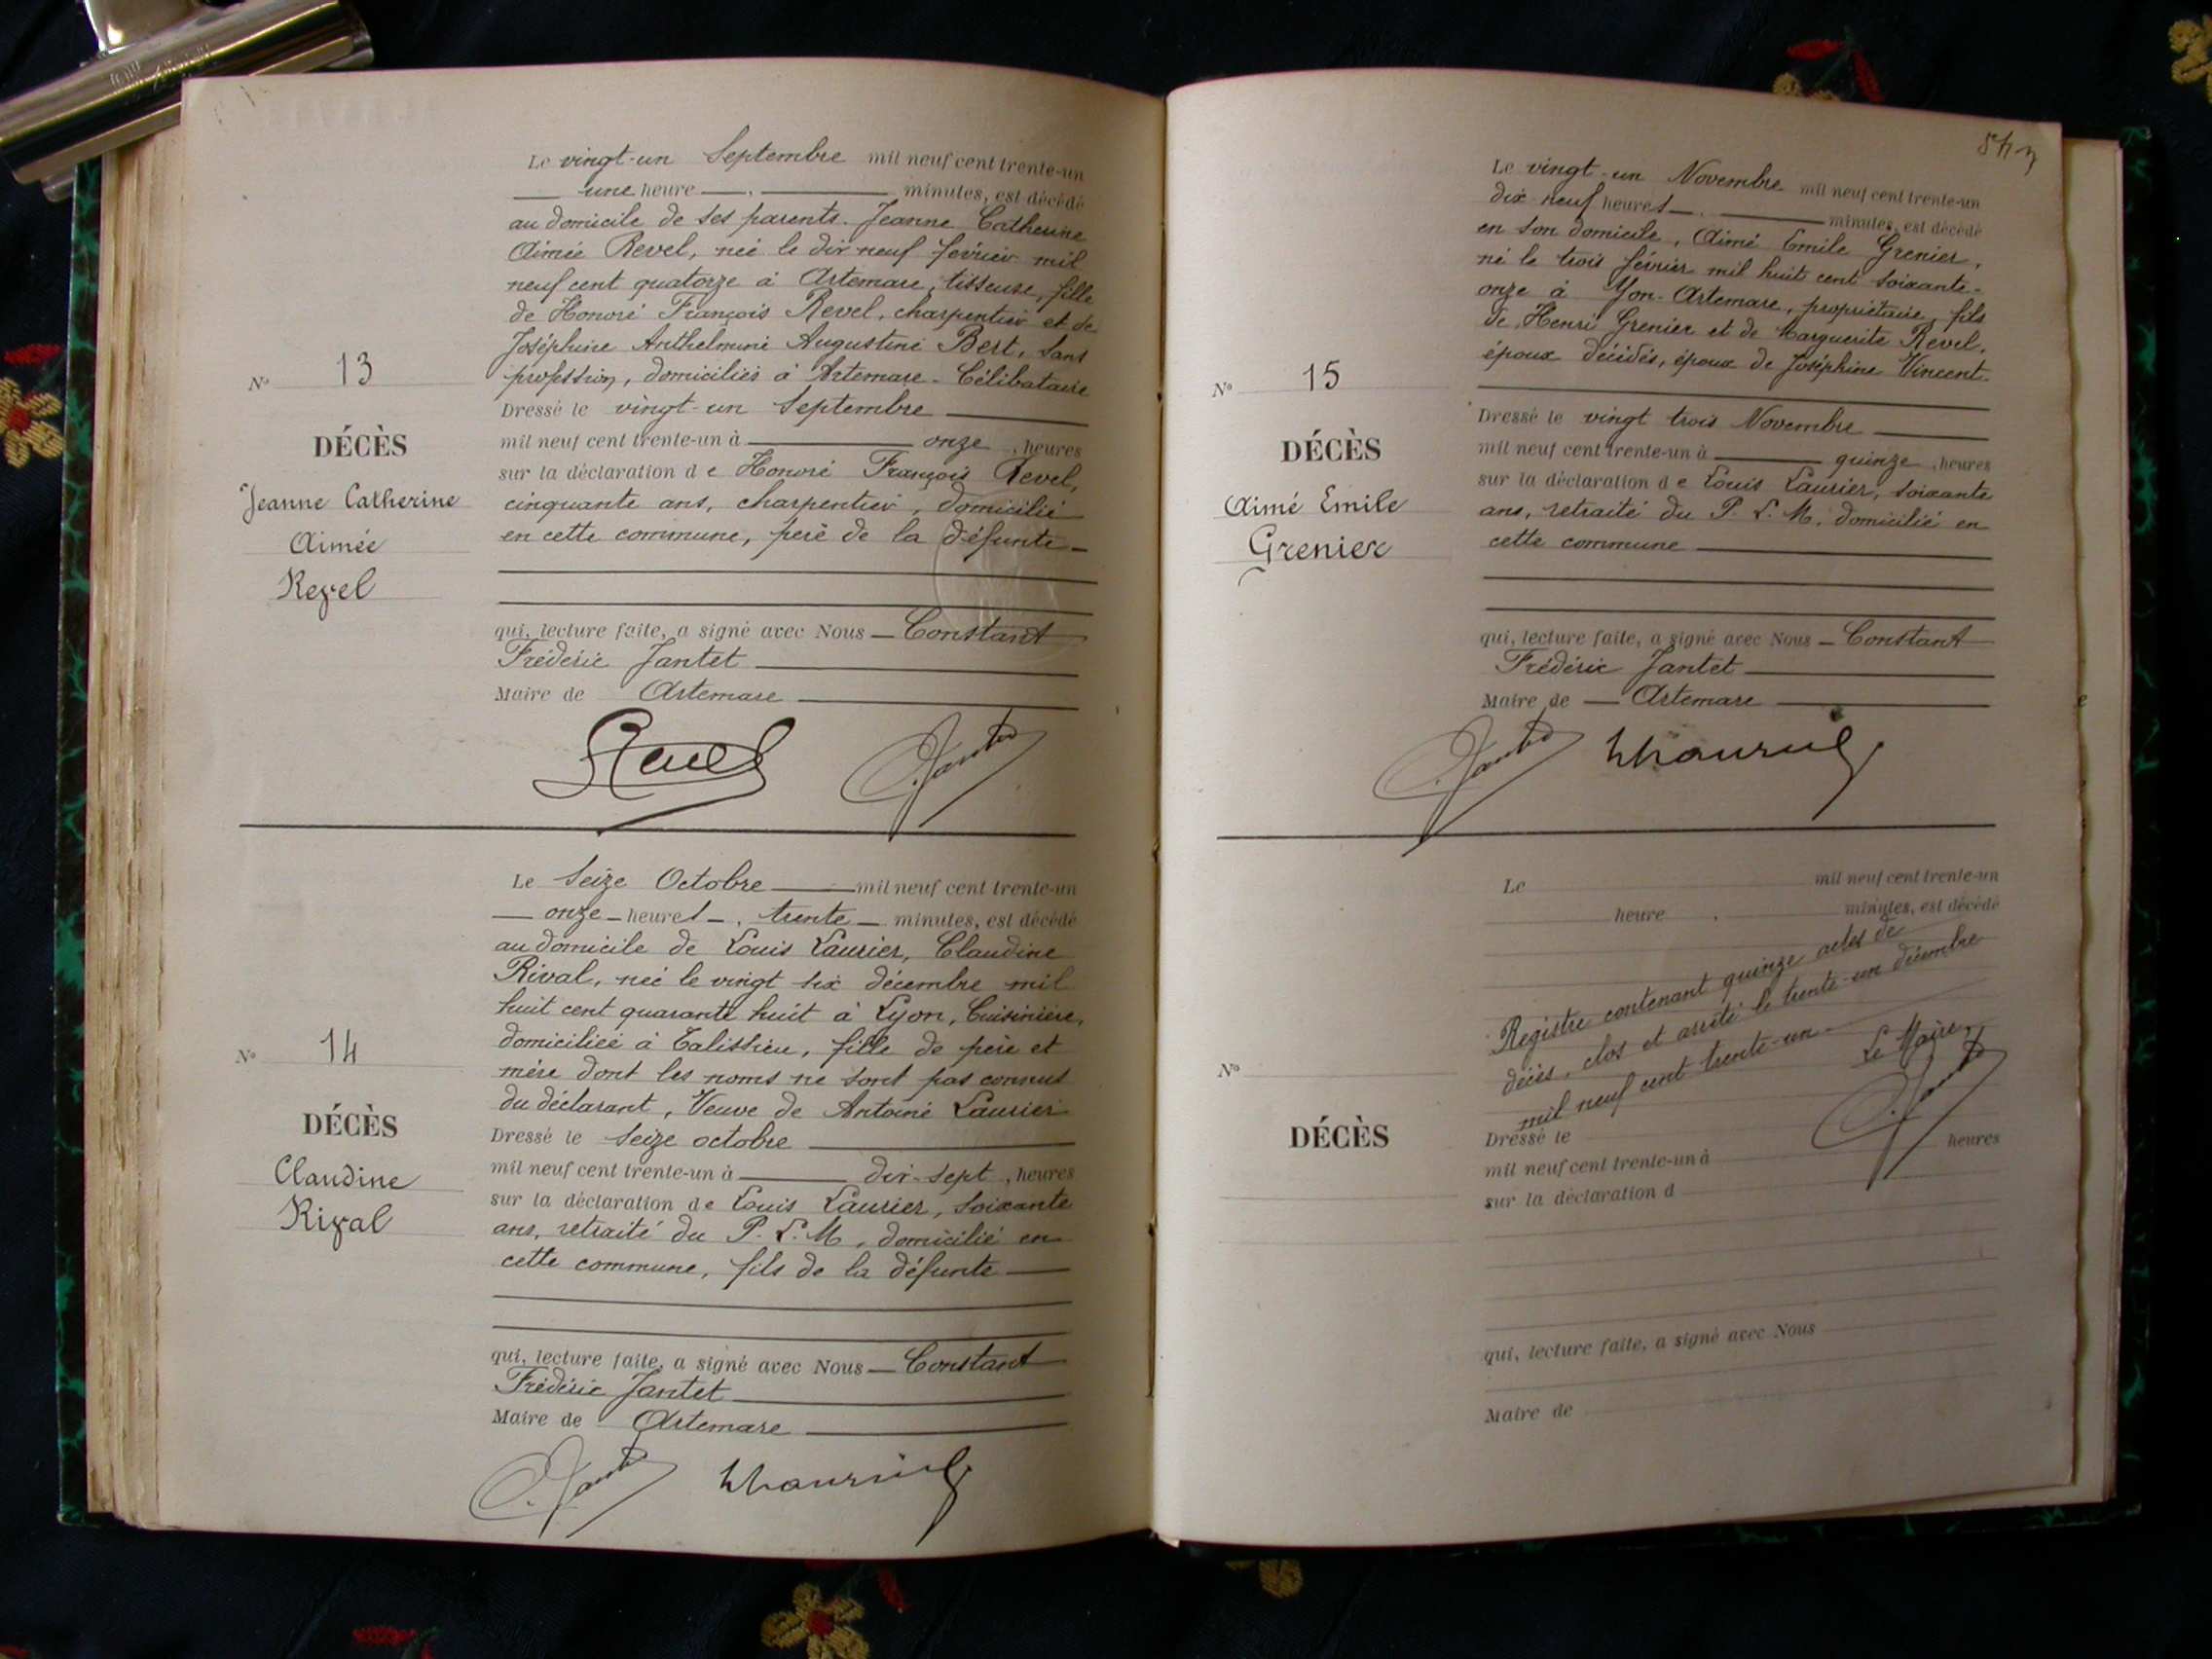 Le vingt-un Septembre mil neuf cent trente-un
une heure minutes, est décédé
au domicile de ses parents. Jeanne Catherine
Aimée Revel, née le dix neuf février mil
neuf cent quatorze à Artemare, tisseuse, fille
de Honoré François Revel, charpentier et de
Joséphine Anthelmine Augustine Bert, sans
profession, domiciliés à Artemare - Célibataire
Nº 13
DÉCÈS
Jeanne Catherine
Aimée
Revel
Dressé le vingt-un Septembre
mil neuf cent trente-un à onze, heures
sur la déclaration de Honoré François Revel,
cinquante ans, charpentier, domicilié
en cette commune, père de la défunte
qui, lecture faite, a signé avec Nous - Constant
Frédéric Jantet
Maire de Artemare
Revel Jantet
Le Seize Octobre mil neuf cent trente-un
onze heures, trente minutes, est décédé
au domicile de Louis Laurier, Claudine
Rival, née le vingt six décembre mil
huit cent quarante huit à Lyon, Cuisinière,
domiciliée à Talissieu, fille de père et
mère dont les noms ne sont pas connus
du déclarant, Veuve de Antoine Laurier
Nº 14
DÉCÈS
Claudine
Rival
Dressé le seize octobre
mil neuf cent trente-un à dix-sept, heures
sur la déclaration de Louis Laurier, soixante
ans, retraité du P. L. M, domicilié en
cette commune, fils de la défunte
qui, lecture faite, a signé avec Nous - Constant
Frédéric Jantet
Maire de Artemare
Jantet
Le vingt-un Novembre mil neuf cent trente-un
dix neuf heures minutes, est décédé
en son domicile, Aimé Emile Grenier,
né le trois février mil huit cent soixante-
onze à Yon-Artemare, propriétaire, fils
de Henri Grenier et de Marguerite Revel,
époux décédés, époux de Joséphine Vincent.
Nº 15
DÉCÈS
Aimé Emile
Grenier
Dressé le vingt trois Novembre
mil neuf cent trente-un à quinze, heures
sur la déclaration de Louis Laurier, soixante
ans, retraité du P. L. M, domicilié en
cette commune
qui, lecture faite, a signé avec Nous - Constant
Frédéric Jantet
Maire de Artemare
Jantet
Le mil neuf cent trente-un
heure, minutes, est décédé
Registre contenant quinze actes de
décès, clos et arrêté le trente-un décembre
mil neuf cent trente-un
Le Maire,
Jantet
Nº
DÉCÈS
Dressé le
mil neuf cent trente-un à heures
sur la déclaration d
qui, lecture faite, a signé avec Nous
Maire de